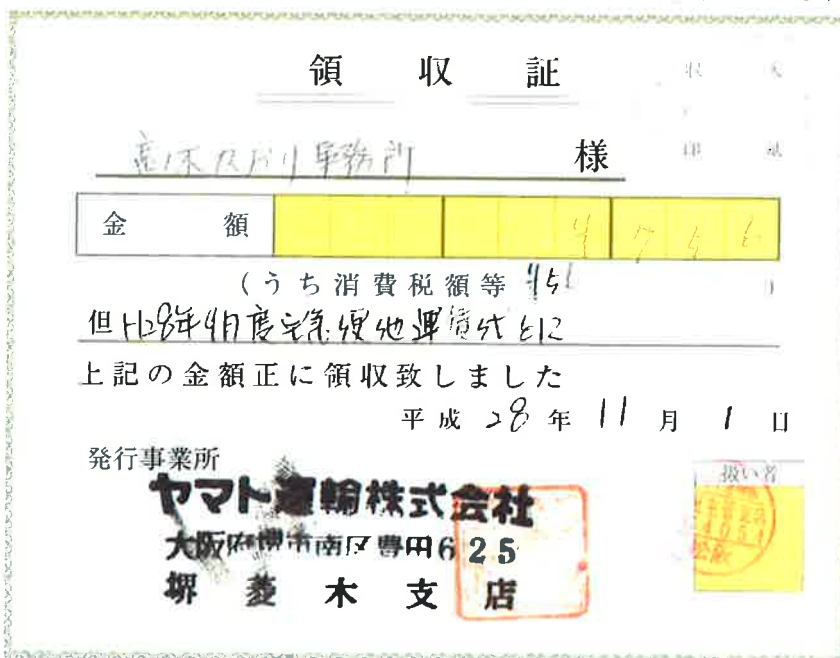 領収証
収入
印紙
事務所 様
金額 ¥756
(うち消費税額等 ¥56)
但 H28年9月度宅急便他運賃代として
上記の金額正に領収致しました
平成 28 年 11 月 1 日
発行事業所
扱い者
ヤマト運輸株式会社
大阪府堺市南区豊田625
堺菱木支店